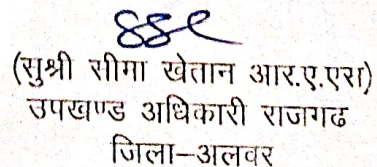 (सुश्री सीमा खेतान आर.ए.एस)
उपखण्ड अधिकारी राजगढ
जिला-अलवर